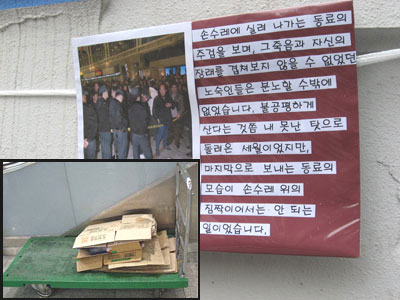 손수레에 실려 나가는 동료의
주검을 보며, 그죽음과 자신의
장래를 겹쳐보지 않을 수 없었던
노숙인들은 분노할 수밖에
없었습니다. 불공평하게
산다는 것쯤 내 못난 탓으로
돌려온 세월이었지만,
마지막으로 보내는 동료의
모습이 손수레 위의
짐짝이어서는 안 되는
일이었습니다.